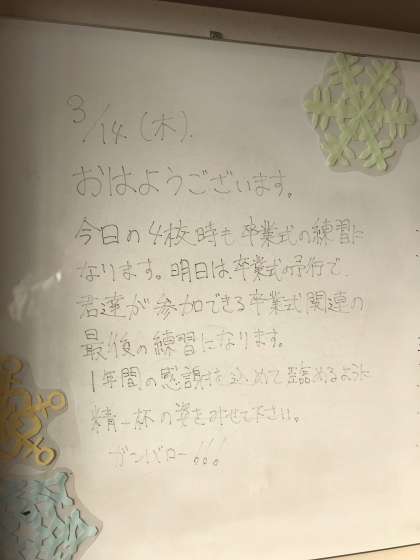 3/14.(木).
おはようございます。
今日の4校時も卒業式の練習に
なります。明日は卒業式の予行で、
君達が参加できる卒業式関連の
最後の練習になります。
1年間の感謝を込めて臨めるように
精一杯の姿をみせて下さい。
ガンバロー!!!